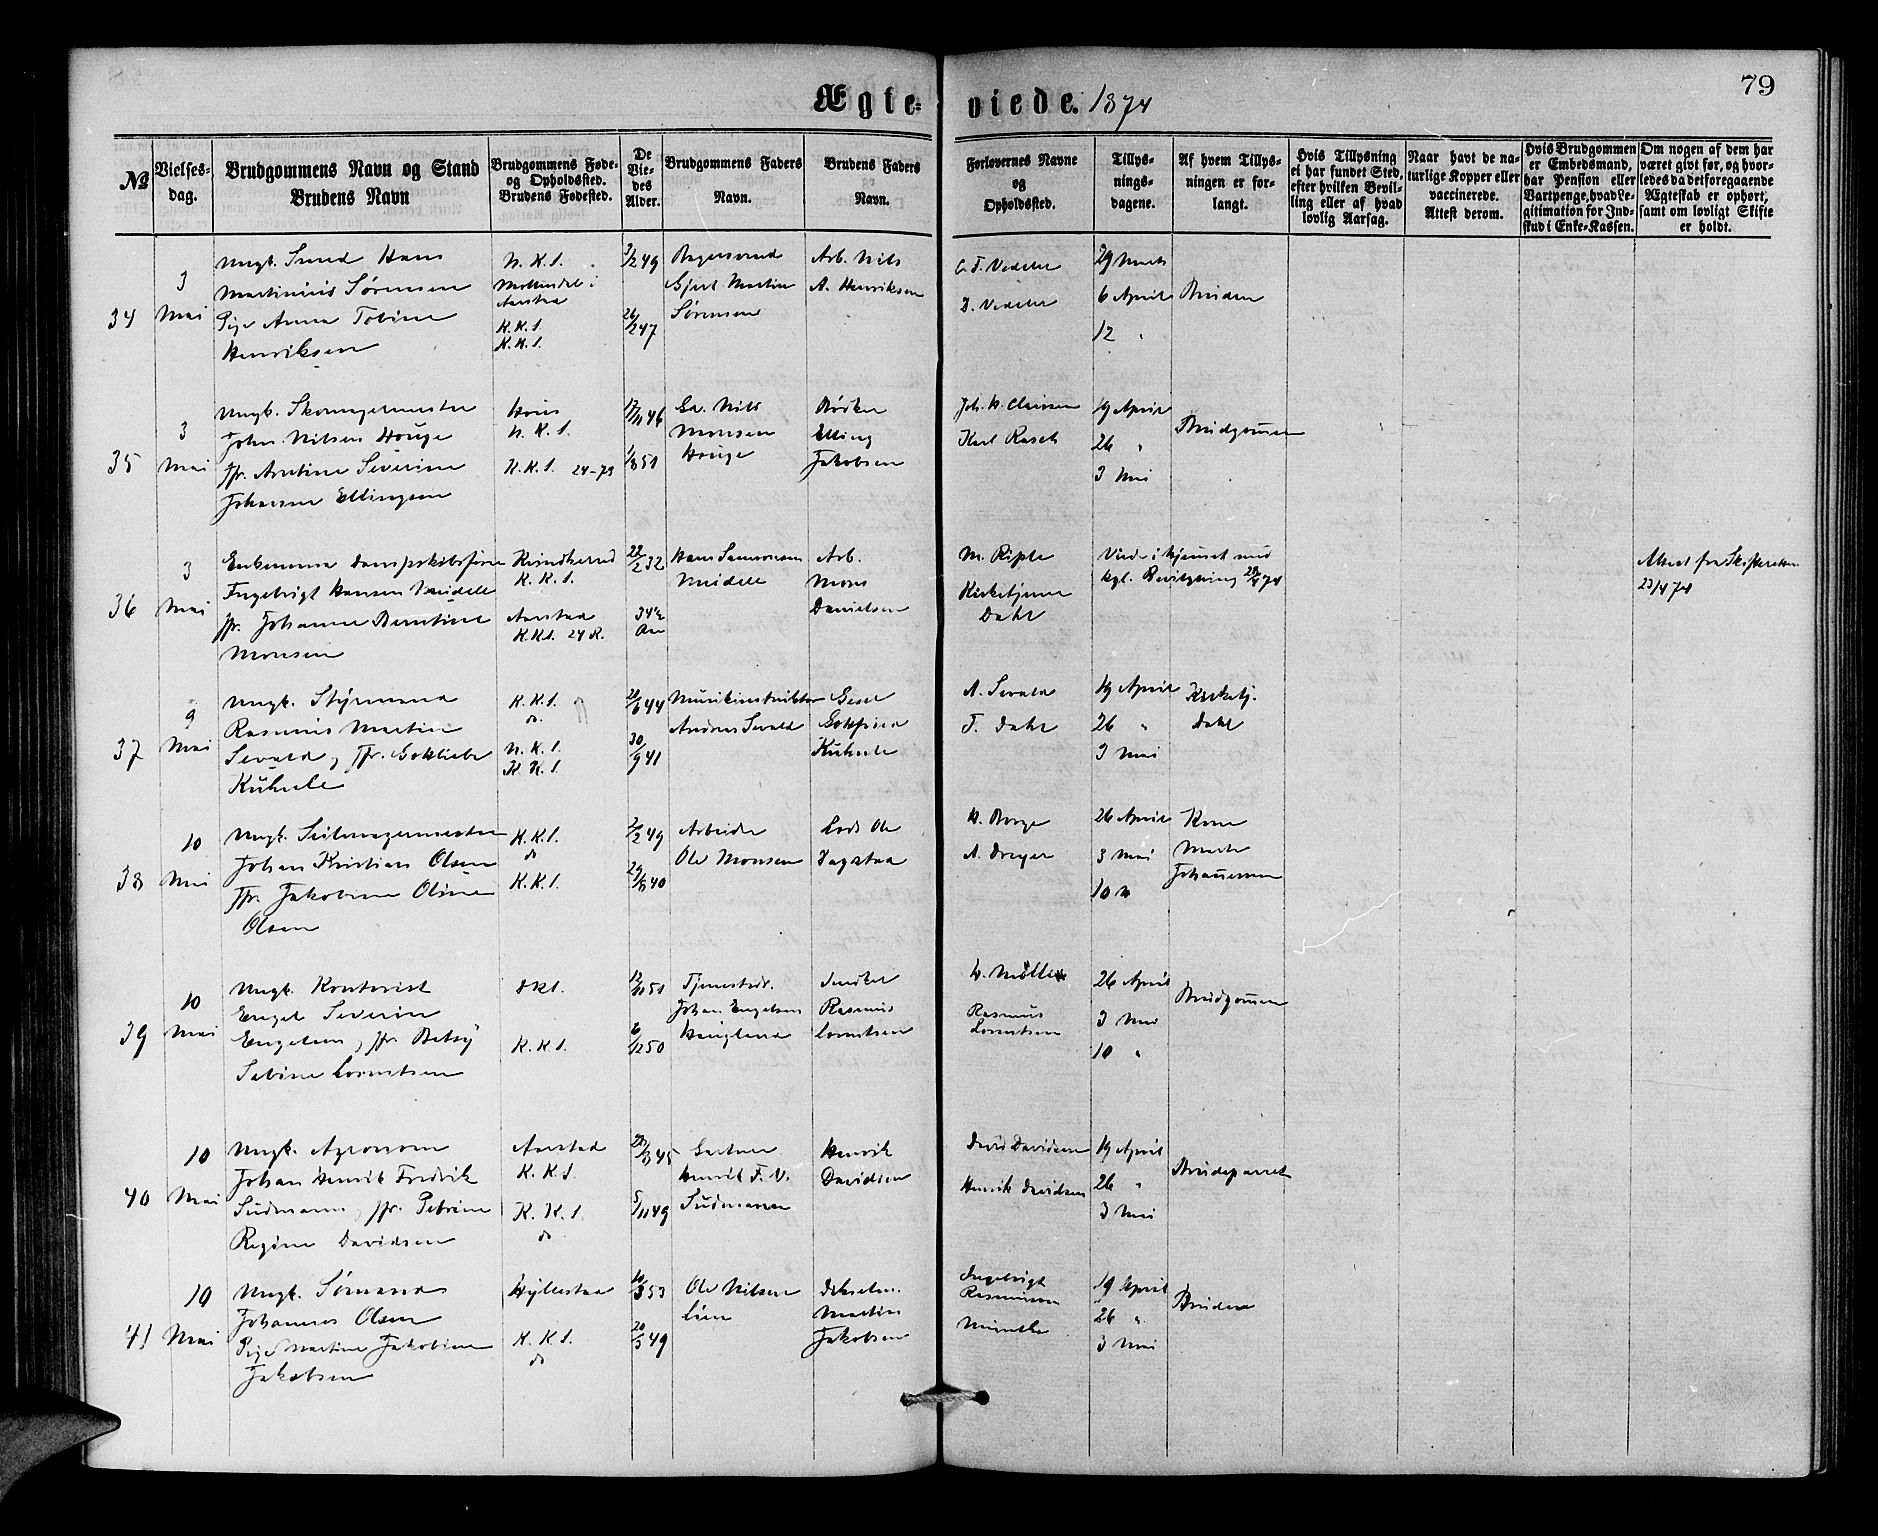 Ægte- viede. 1874
79
№
Vielses-
dag.
Brudgommens Navn og Stand
Brudens Navn
Brudgommens Føde-
og Opholdssted.
Brudens Fødested.
De
Vie-
des
Alder.
Brudgommens Faders
Navn.
Brudens Faders
Navn.
Forlovernes Navne
og
Opholdssted.
Tillys-
nings-
dagene.
Af hvem Tillys-
ningen er for-
langt.
Hvis Tillysning
ei har fundet Sted,
efter hvilken Bevil-
ling eller af hvad
lovlig Aarsag.
Naar havt de na-
turlige Kopper eller
vaccinerede.
Attest derom.
Hvis Brudgommen
er Embedsmand,
har Pension eller
Vartpenge, hvad Le-
gitimation for Ind-
skud i Enke-Kassen.
Om nogen af dem har
været givt før, og hvor-
ledes da det foregaaende
Ægteskab er ophørt,
samt om lovligt Skifte
er holdt.
34
3
Mai
Ungk. Smed Hans
Martinius Sørensen
Pige Anna Tobine
Henriksen
N. K. S.
Møllendal i
Aarstad
K. K. S.
K. K. S.
26/2 47
Gjert Martin
Sørensen
Arb. Nils
A. Henriksen
C. F. Vedeler
D. Vedeler
29 Marts
6 April
12 "
Bruden
35
3
Mai
Ungk. Skomagermester
John Nilsen Houge
Jfr. Anetine Severine
Johanne Ellingsen
Hous
N. K. S.
K. K. S. 24-73
17/11 46
1/8 51
Nils
Monsen
Houge
Bødker
Elling
Jakobsen
Joh. H. Claissen
Karl Rasch
19 April
26 "
3 Mai
Brudgommen
36
3
Mai
Enkemand Dampskibsfører
Ingebrigt Hansen
Jfr. Johanne Berntine
Monsen
Kvindherred
K. K. S.
Aarstad
K. K. S. 24 R.
22/2 32
34½
Aar
Hans Samsonsen
Arb.
Mons
Danielsen
M. Riple
Kirketjener
Dahl
Viede i hjemmet med
kgl. Bevilgning 28/4 74
Attest fra Skifteretten
23/4 74
37
9
Mai
Ungk. Styrmand
Rasmus Martin
Sevald, Jfr. Gotliebe
Kühnle
K. K. S.
do.
N. K. S.
K. K. S.
21/6 44
30/9 41
Musikinstruktør
Andreas Sevald
Gotfried
Kühnle
A. Sevald
T. Dahl
19 April
26 "
3 Mai
Kirketj.
Dahl
38
10
Mai
Ungk. Seilmagermester
Johan Kristian Olsen
Jfr. Jakobine Oline
Olsen
K. K. S.
do
K. K. S.
2/2 49
Arbeider
Ole Monsen
Lods Ole
H. Borge
A. Dreyer
26 April
3 Mai
10 "
Kone
Marte
Johannesen
39
10
Mai
Ungk. Kontorist
Engel Severin
Engelsen, Jfr. Betsy
Sabine Lorentsen
DKS.
K. K. S.
6/12 50
Tjenestedr.
Johan Engelsen
Haugland
Snedker
Rasmus
Lorentsen
Rasmus
Lorentsen
26 April
3 Mai
10 "
Brudgommen
40
10
Mai
Ungk. Agronom
Johan Henrik Fredrik
Sudmann, Jfr. Petrine
Regine Davidsen
Aarstad
K. K. S.
K. K. S.
do
5/11 49
Gartner
Henrik F. V.
Sudmann
Henrik
Davidsen
David Davidsen
Henrik Davidsen
19 April
26 "
3 Mai
Brudeparret
41
10
Mai
Ungk. Sømand
Johannes Olsen
Pige Martine Jakobine
Jakobsen
Hyllestad
K. K. S.
do
10/3 53
20/3 49
Ole Nilsen
Martin
Jakobsen
Ingebrigt
Rasmussen
Munthe
19 April
26 "
3 Mai
Bruden